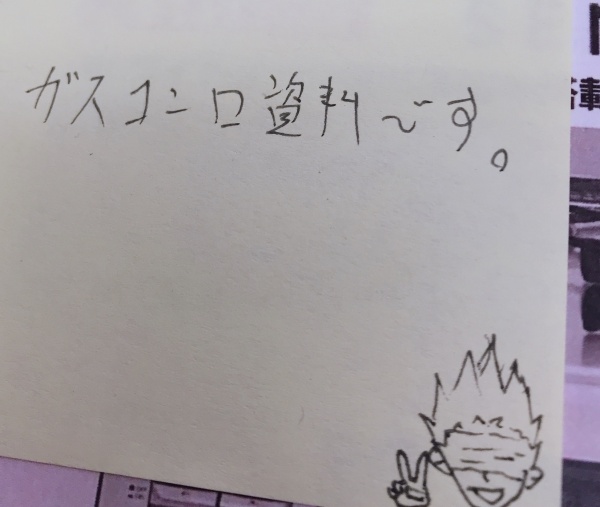 ガスコンロ資料です。
搭載